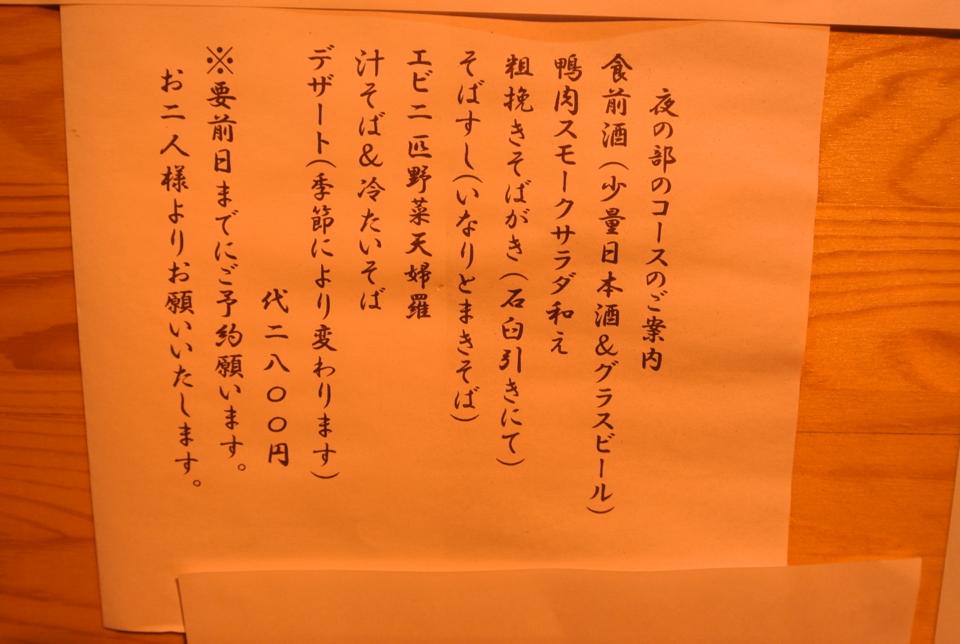 夜の部のコースのご案内
食前酒(少量日本酒&グラスビール)
鴨肉スモークサラダ和え
粗挽きそばがき(石臼引きにて)
そばすし(いなりとまきそば)
エビ二匹野菜天婦羅
汁そば&冷たいそば
デザート(季節により変わります)
代二八〇〇円
※要前日までにご予約願います。
お二人様よりお願いいたします。